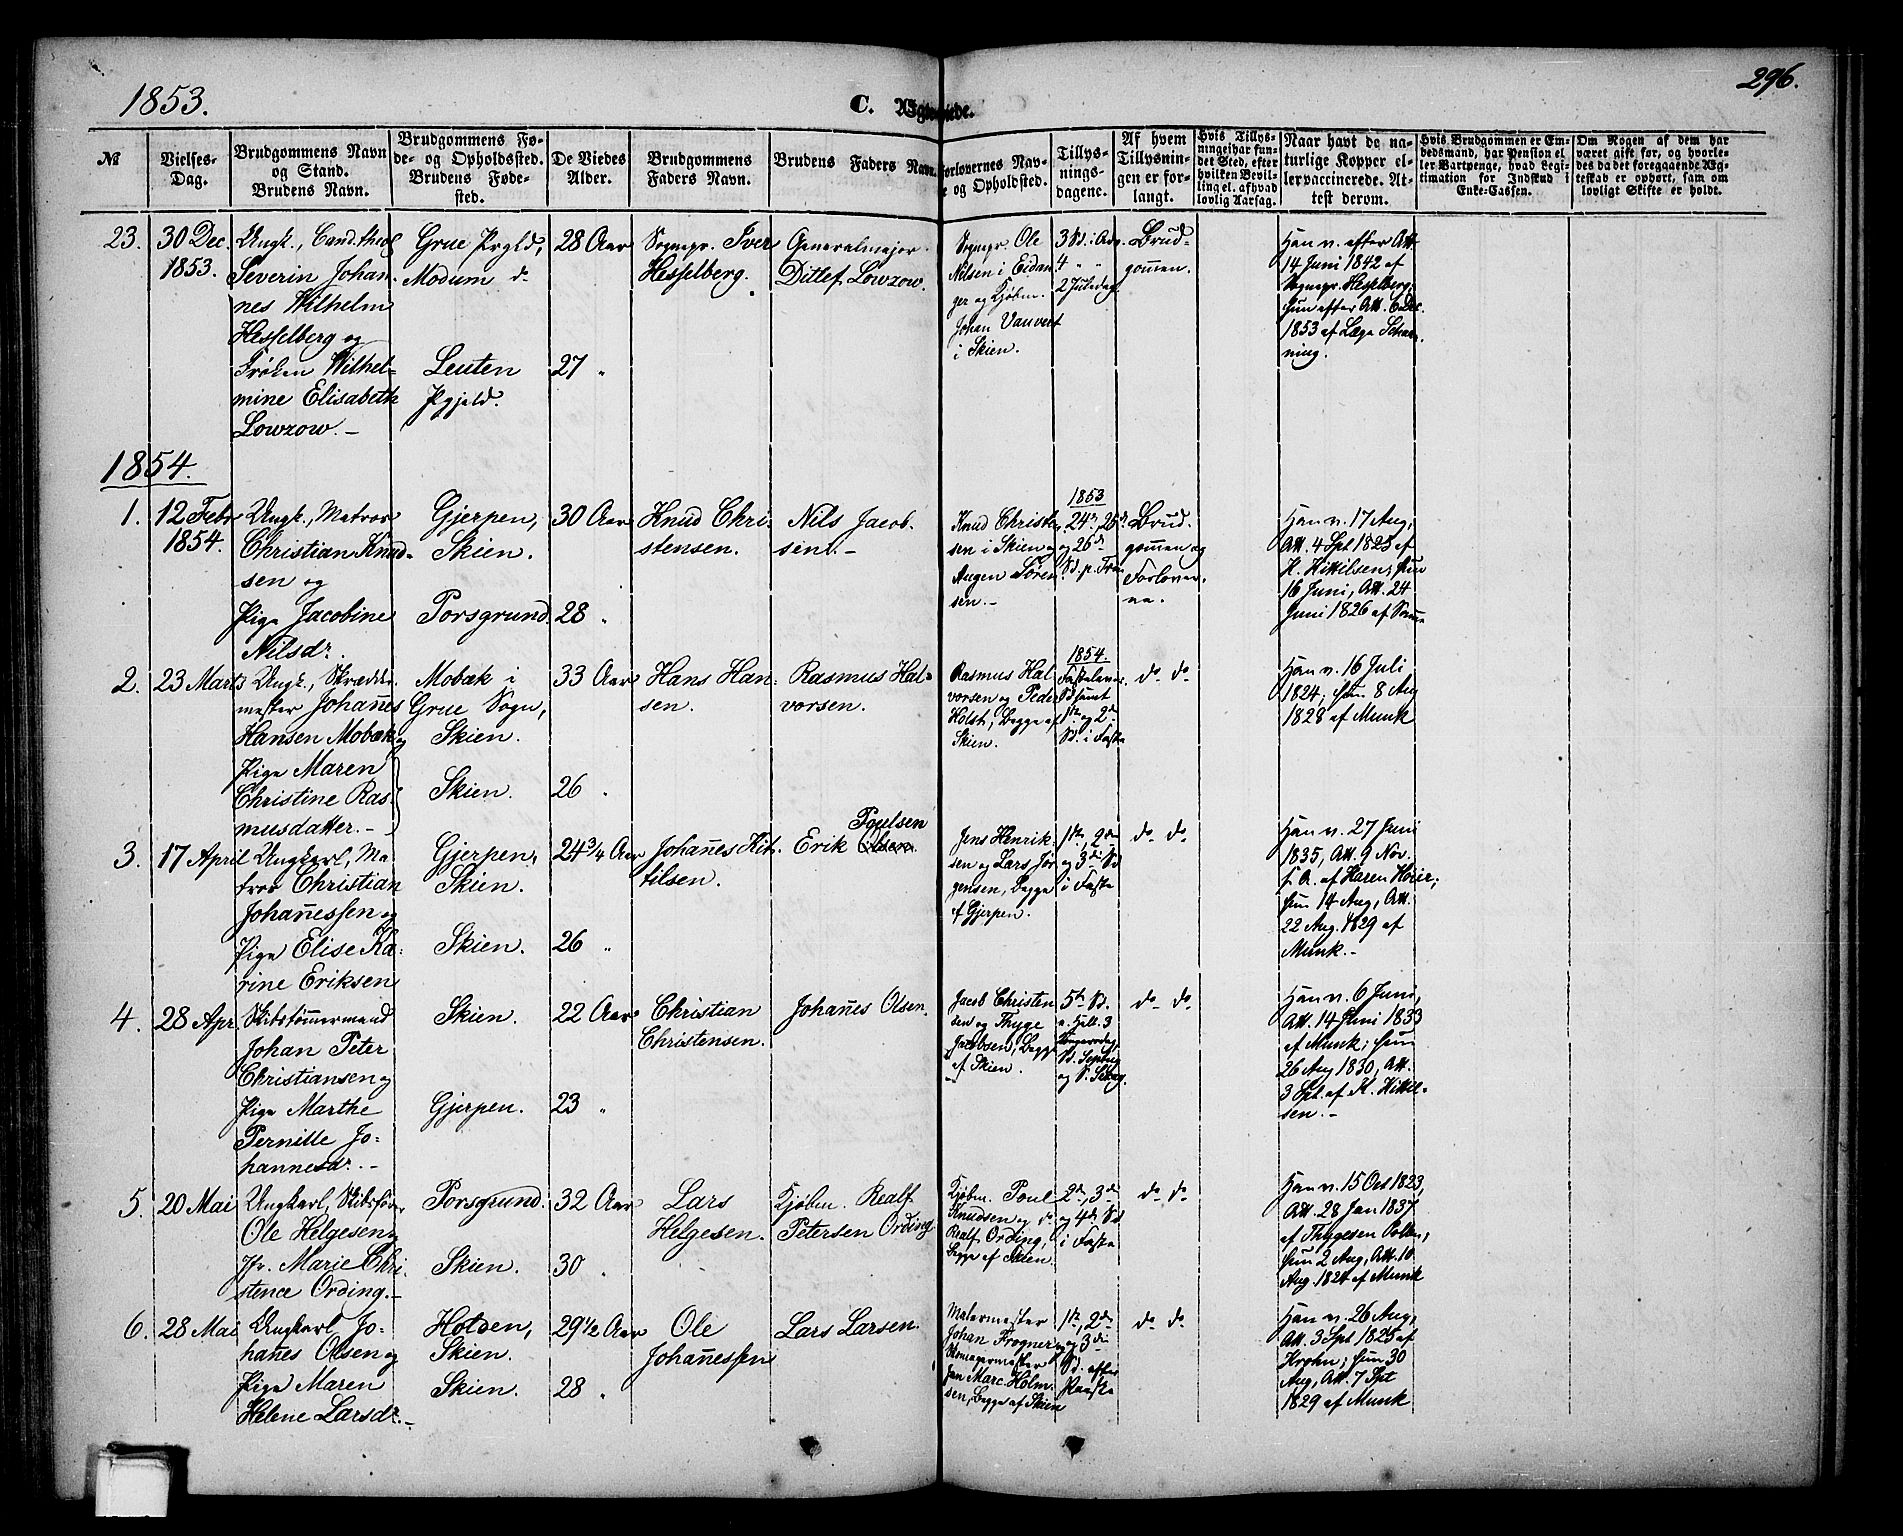 1853.
C. Ægteviede.
296.
№
Vielses-
Dag.
Brudgommens Navn
og Stand.
Brudens Navn.
Brudgommens Fø-
de- og Opholdssted.
Brudens Føde-
sted.
De Viedes
Alder.
Brudgommens
Faders Navn.
Brudens Faders Navn.
Forlovernes Nav-
ne og Opholdssted.
Tillys-
nings-
dagene.
Af hvem
Tillysnin-
gen er for-
langt.
Hvis Tillys-
ningei har fun-
det Sted, efter
hvilken Bevil-
ling el. afhvad
lovlig Aarsag.
Naar havt de na-
turlige Kopper el-
ler vaccinerede. At-
test derom.
Hvis Brudgommen er Em-
bedsmand, har Pension el
ler Vartpenge, hvad Legi-
timation for Indskud i
Enke-Cassen.
Om Nogen af dem har
været gift før, og hvorle-
des da det foregaaende Æg-
teskab er ophørt, sam om
lovligt Skifte er holdt.
23.
30 Dec.
1853.
Ungk., Cand. theol
Severin Johan-
nes Wilhelm
Hesselberg og
Frøken Wilhel-
mine Elisabeth
Lowzow.
Grue Prgld,
Modum do
Leuten
Prgjeld.
28 Aar
27 "
Sognepr. Iver
Hesselberg.
Generalmajor
Ditlef Lowzow.
Sognepr. Ole
Nilsen i Eidan-
ger og Kjøbm.
Johan Vauvert
i Skien.
3 Sd. i Adv.
4 " "
2 Juledag
Brud-
gom̄en.
Han v. efter Att.
14 Juni 1842 af
Sognepr. Hesselberg;
hun efter Att. 6 Dec.
1853 af Læge
1854.
1.
12 Febr
1854.
Ungk., Matros
Christian Knud-
sen og
Pige Jacobine
Nilsdr.
Gjerpen,
Skien.
Porsgrund.
30 Aar
28 "
Knud Chri-
stensen.
Nils Jacob-
sen.
Knud Christen-
sen i Skien og
Augen Søren-
sen.
1853
24de, 25de
og 26de
Sd. p. Trin.
Brud-
gom̄en og
Forlover-
ne.
Han v. 17 Aug,
Att. 4 Spt 1825 af
H. Kittilsen; hun
16 Juni, Att. 24
Juni 1826 af
2.
23 Marts
Ungk., Skrædder-
mester Johan̄es
Hansen Mobæk og
Pige Maren
Christine Ras-
musdatter.
Mobæk i
Grue Sogn,
Skien.
Skien.
33 Aar
26 "
Hans Han-
sen.
Rasmus Hal-
vorsen.
Rasmus Hal-
vorsen og Peder
Holst, begge af
Skien.
1854.
Fastelavns
Sd samt
1ste og 2de
Sd. i Faste
do do
Han v. 16 Juli
1824; hun 8 Aug
1828 af Munk
3.
17 April
Ungkarl, Ma-
tros Christian
Johan̄essen og
Pige Elise Ka-
rine Eriksen
Gjerpen,
Skien.
Skien.
24 3/4 Aar
26 "
Johan̄es Kit-
tilsen.
Poulsen
Erik Olsen.
Jens Henrik-
sen og Lars Jør-
gensen, begge
af Gjerpen.
1ste, 2de
og 3die Sd
i Faste
do do
Han v. 27 Juni
1835, Att. 9 Nov.
s. A. af Maren Høier;
hun 14 Aug, Att.
22 Aug. 1829 af
Munk.
4.
28 Apr.
Skibstøm̄ermand
Johan Peter
Christiansen og
Pige Marthe
Pernille Jo-
hannesdr.
Skien.
Gjerpen.
22 Aar
23 "
Christian
Christensen.
Johan̄es Olsen.
Jacob Christen-
sen og Thyge
Jacobsen, begge
af Skien.
5te Sd.
e. Hell. 3
Kongersdag,
Sd. Septuag
og S. Sexag.
do do
Han v. 6 Juni,
Att. 14 Juni 1833
af Munk; hun
26 Aug 1830, Att.
3 Spt. af H. Kittil-
sen.
5.
20 Mai
Ungkarl, Skibsfører
Ole Helgesen og
Jfr. Marie Chri-
stence Ording.
Porsgrund.
Skien.
32 Aar
30 "
Lars
Helgesen.
Kjøbm. Realf
Petersen Ording
Kjøbm. Poul
Knudsen og do
Realf Ording,
begge af Skien.
2de, 3die
og 4de Sd
i Faste
do do
Han v. 15 Oct 1823,
Att. 28 Jan 1837
af Thygesen
hun 2 Aug, Att. 10
Aug. 1824 af Munk
6.
28 Mai
Ungkarl Jo-
han̄es Olsen og
Pige Maren
Helene Larsdr.
Holden,
Skien.
Skien.
29 1/2 Aar
28 "
Ole
Johan̄essen
Lars Larsen.
Malermester
Johan Frogner og
Skomagermester
Jan Marc. Holm-
sen, begge af Skien
1ste, 2de
og 3die
Sd. efter
Paaske
do do
Han v. 26 Aug,
Att. 3 Spt 1825 af
Krohn; hun 30
Aug, Att. 7 Spt
1829 af Munk